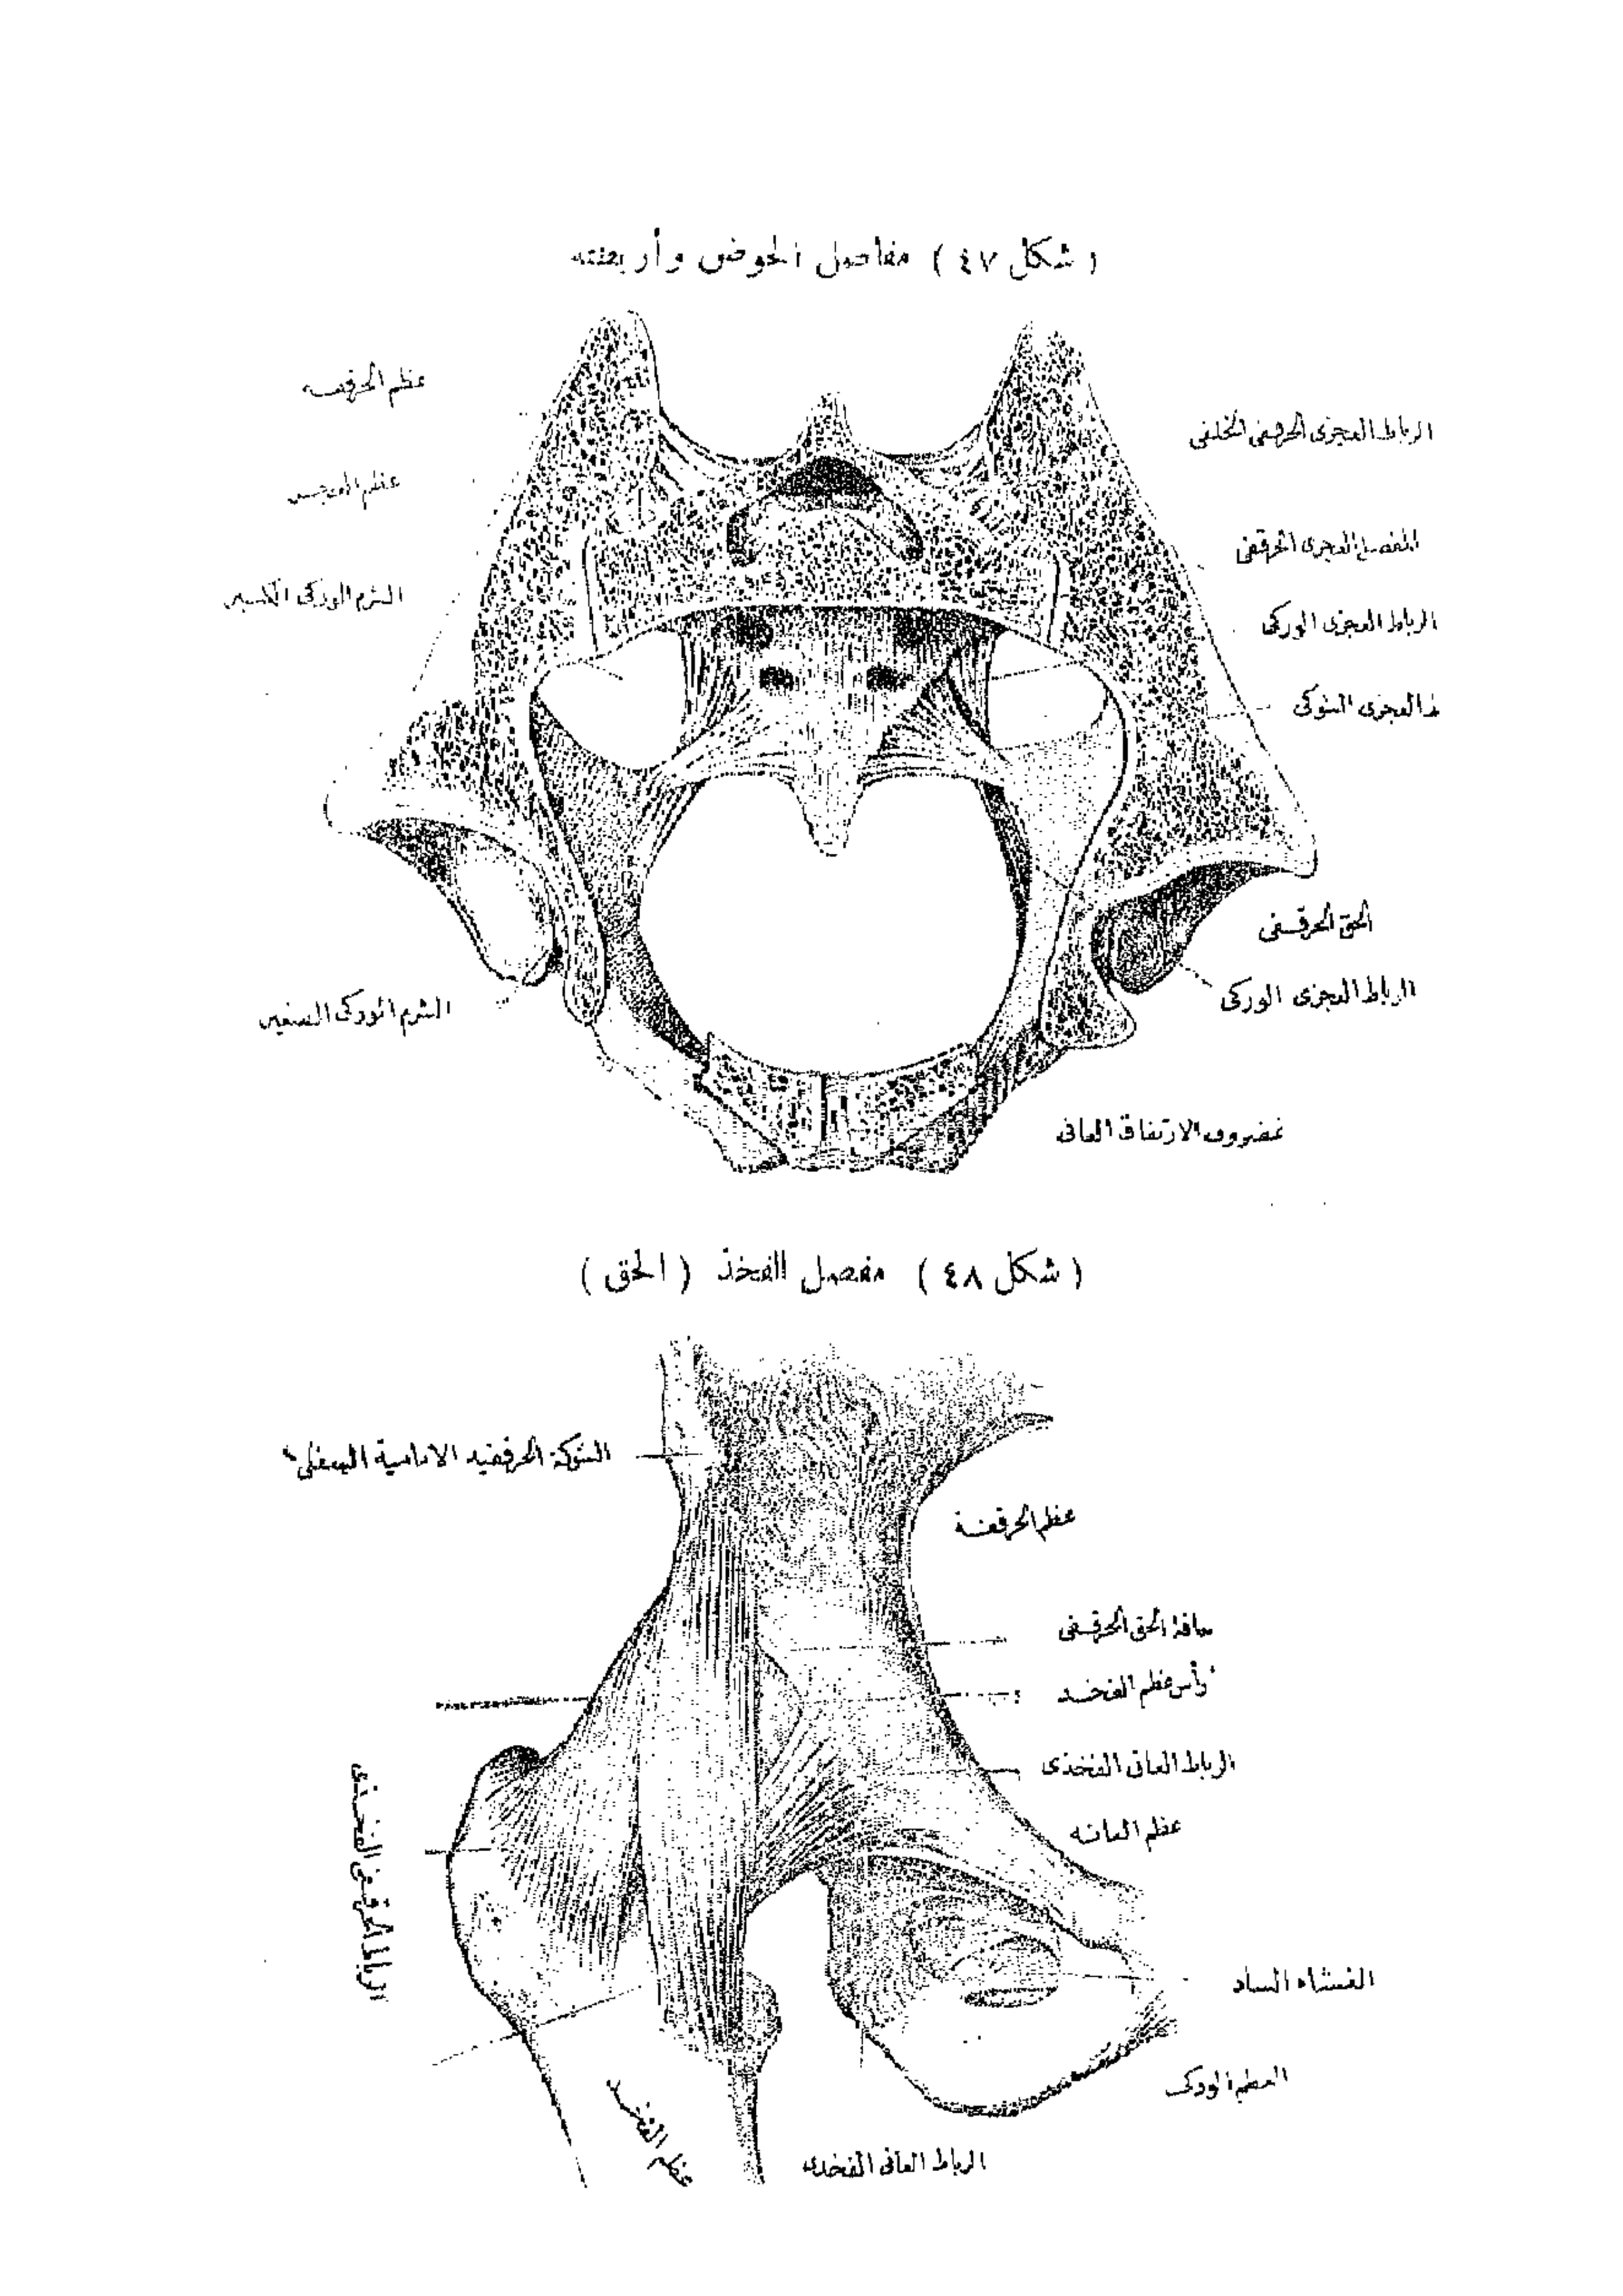 ( شكل ٤٧ ) مفاصل الحوض وأربطته
عظم الحرقفه
الرباط العجزى الحرقفى الخلفى
عظم العجز
المفصل العجزى الحرقفى
الثرم الوركى الكبير
الرباط العجزى الوركى
العجزى الشوكى
الحق الحرقفى
الرباط العجزى الوركى
الشرم الوركى الصغير
غضروف الارتفاق العانى
( شكل ٤٨ ) مفصل الفخذ ( الحق )
الشوكة الحرقفيه الامامية السفلى
عظم الحرقفة
حافة الحق الحرقفى
رأس عظم الفخذ
الرباط العانى الفخذى
عظم العانه
الرباط الحرقفى الفخذى
الغشاء الساد
العظم الوركى
عظم الفخذ
الرباط العانى الفخذى